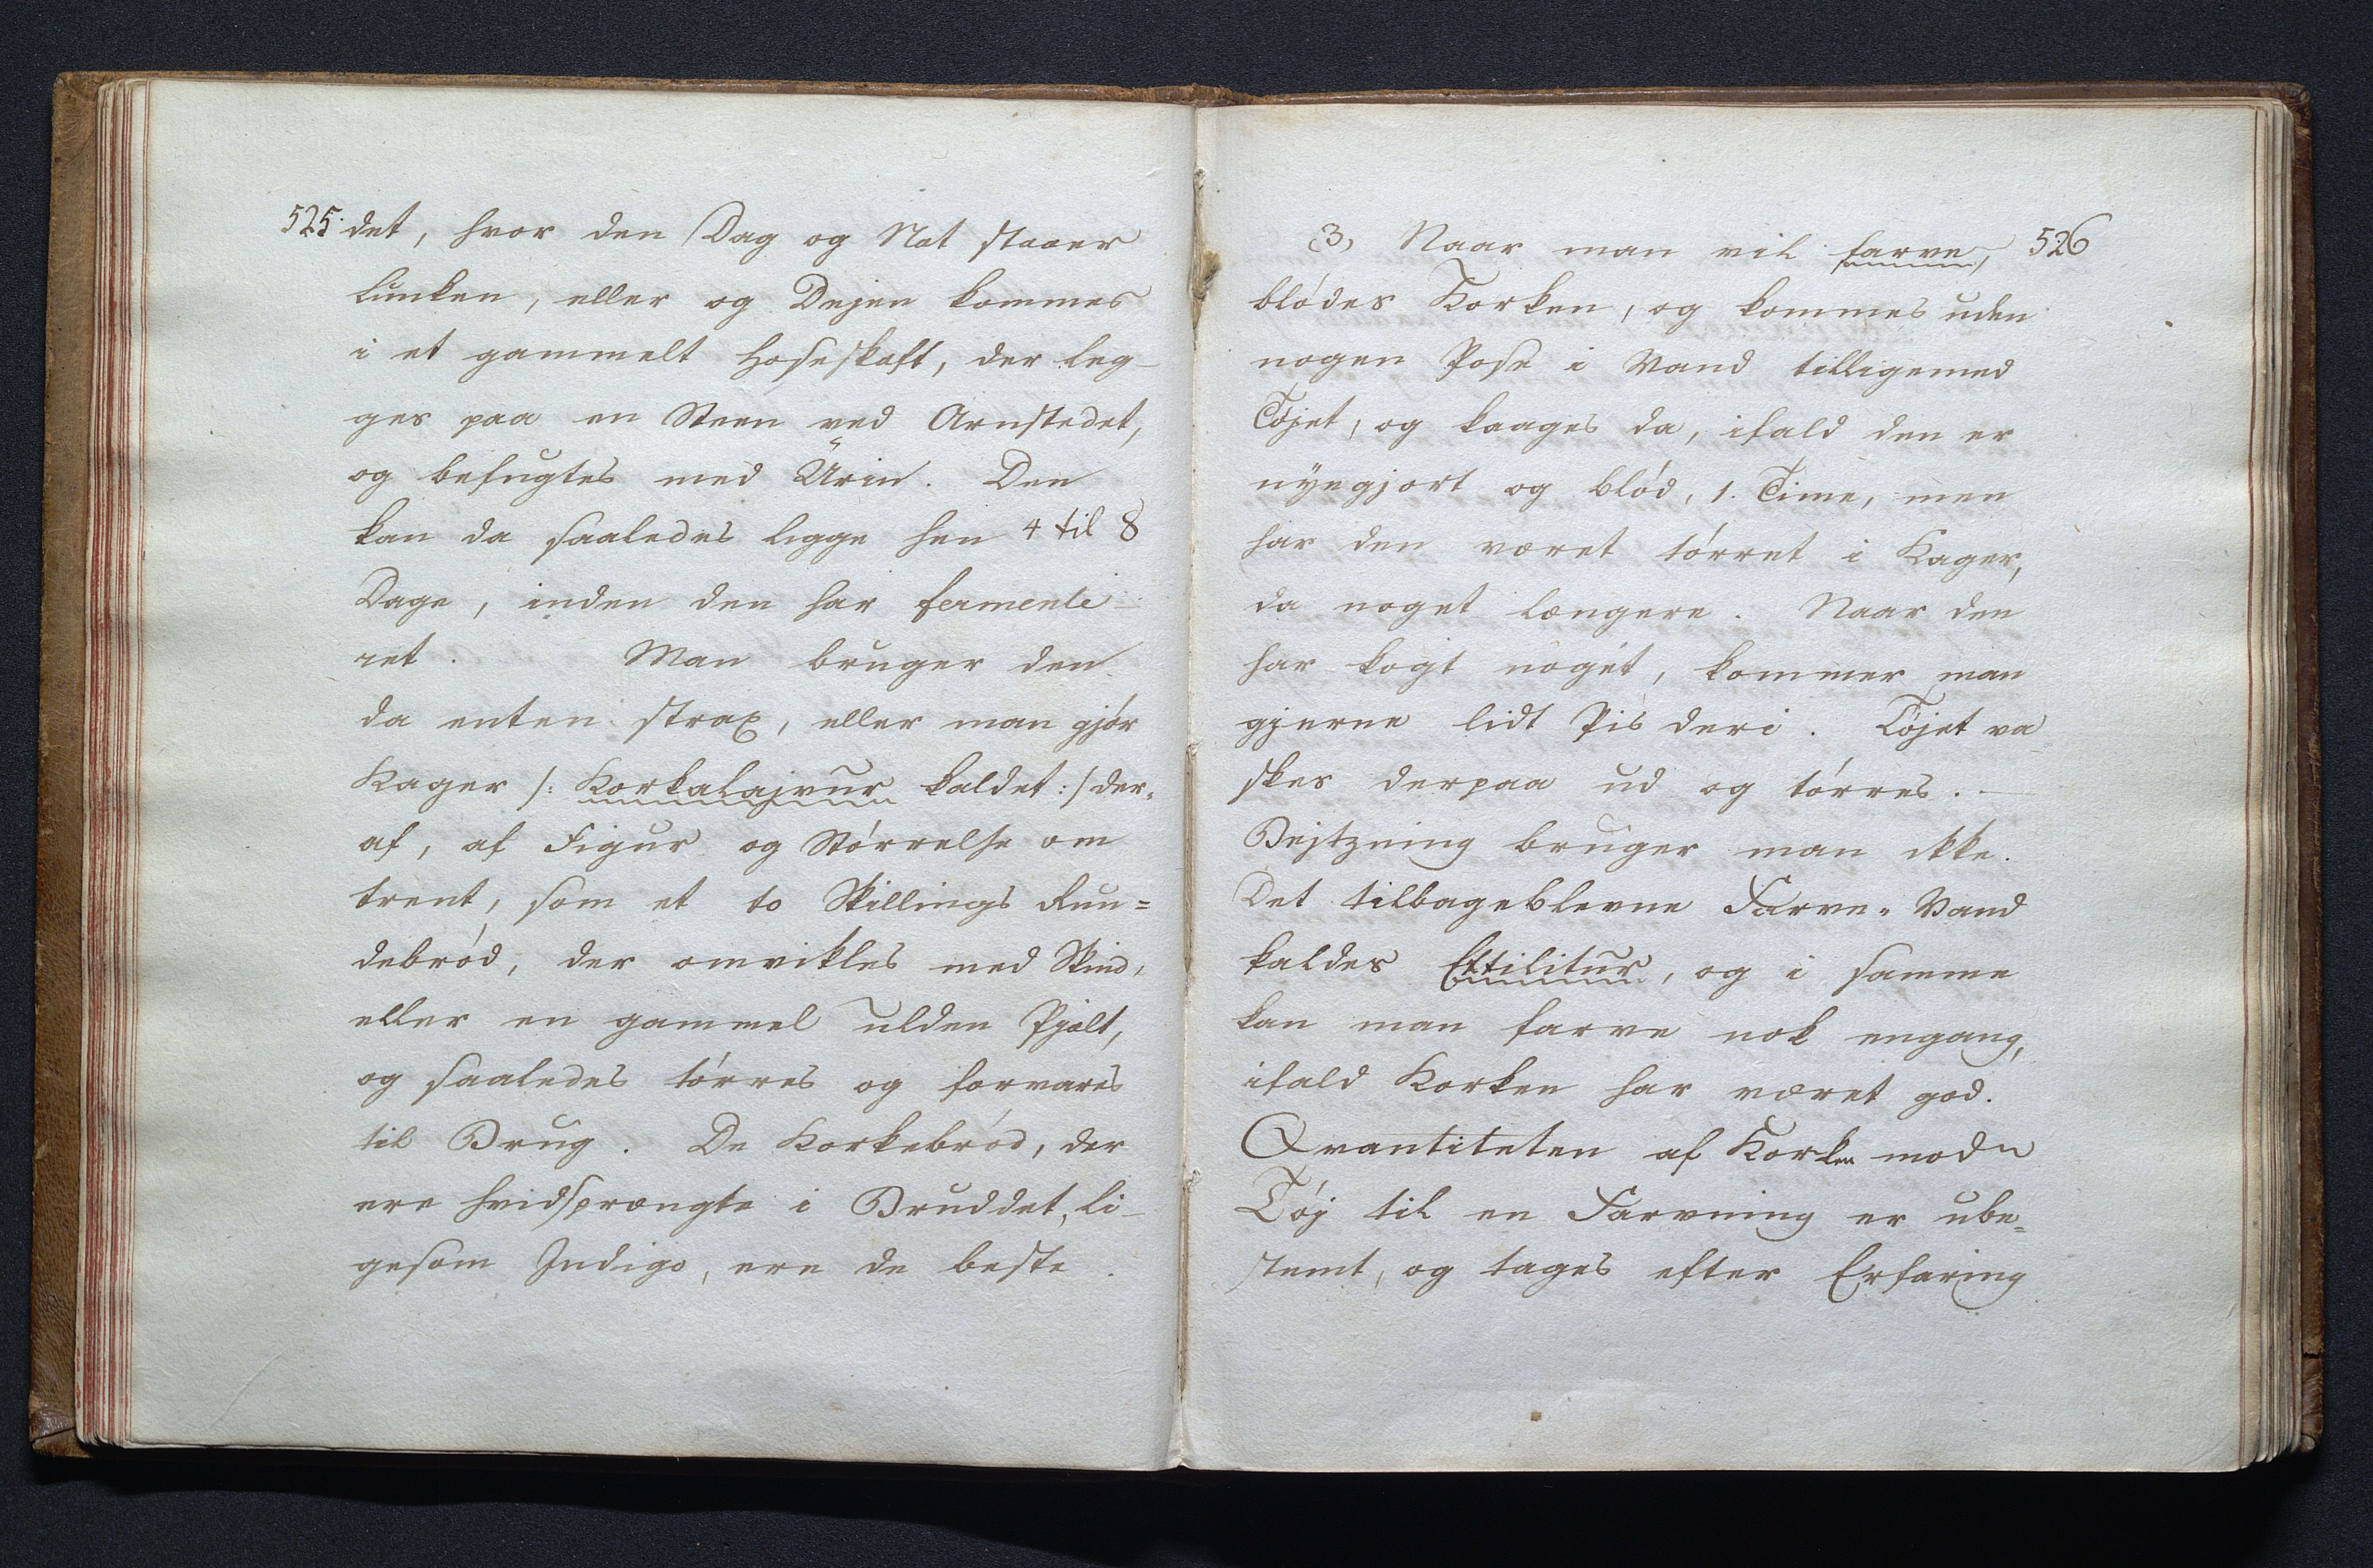 525. det, hvor den Dag og Nat staaer
lunken, eller og Dejen kommes
i et gammelt Hoseskaft, der leg-
ges paa en Steen ved Arnstedet,
og befugtes med Urin. Den
kan da saaledes ligge hen 4 til 8
Dage, inden den har fermente-
ret. Man bruger den
da enten strax, eller man gjór
Kager /: Korkalajvur kaldet :/ der-
af, af Figur og Stórrelse om
trent, som et to Skillings Run=
debród, der omvikles med Skind,
eller en gammel ulden Pjalt,
og saaledes tórres og forvares
til Brug. De Korkebród, der
ere hvidsprængte i Bruddet, li-
gesom Indigo, ere de beste.
3, Naar man vil farve, 526
blódes Korken, og kommes uden
nogen Pose i Vand tilligemed
Tójet, og kaages da, ifald den er
nÿegjort og blód, 1. Time, men
har den været tórret i Kager,
da noget længere. Naar den
har kogt noget, kommer man
gjerne lidt Pis deri. Tójet va
skes derpaa ud og tórres. —
Bejtzning bruger man ikke.
Det tilbageblevne Farve-Vand
kaldes Ettilitur, og i samme
kan man farve nok engang,
ifald Korken har været god.
Qvantiteten af Korken mod
Tój til en Farvning er ube-
stemt, og tages efter Erfaring